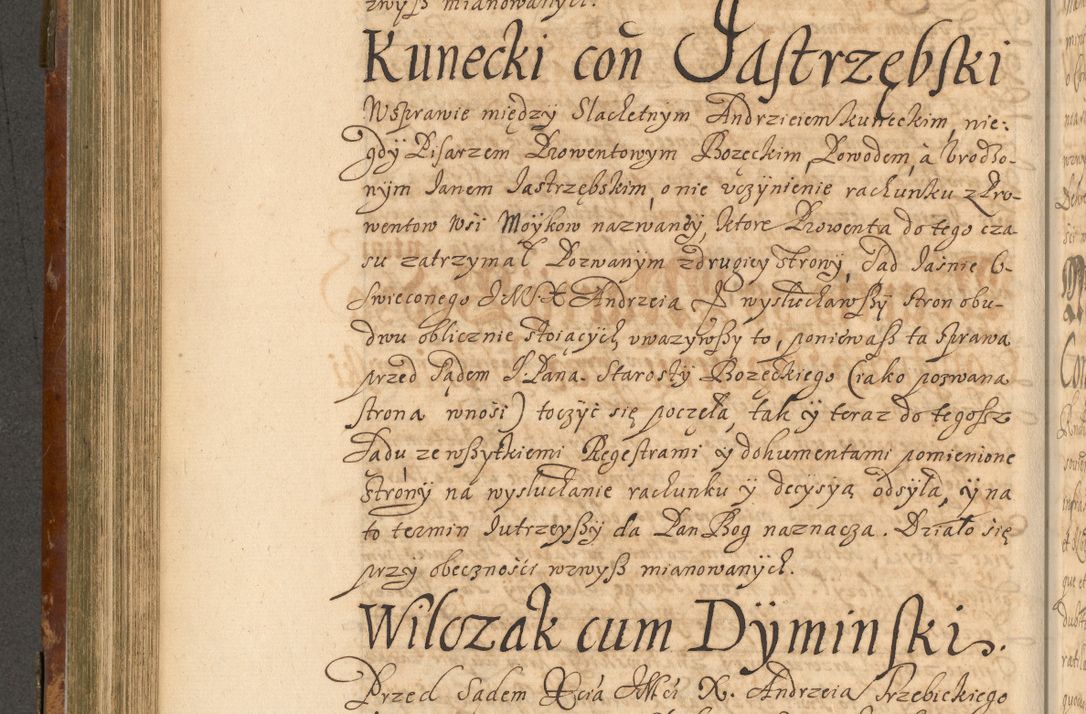 zwyß mianowanych.
Kunecki coñ Jastrzębski
Wsprawie między Slachetnym Andrzeiem kuneckim, nie-
gdy Pisarzem Prowentowym Bozeckim, Powodem, a Urodzo-
nym Janem Jastrzębskim, o nie uczÿnienie rachunku z Pro-
wentow Wsi Moÿkow nazwaneÿ, ktore Prowenta do tego cza
su zatrzymał Pozwanym z drugiey Strony, Sąd Jaśnie O-
Swieconego Andrzeia wysłuchawszy stron obu-
dwu oblicznie stoiących, uwazywszy to, poniewaß ta Sprawa
przed Sądem J. Pana. Starosty Bozeckiego (iako pozwana
strona wnosi) toczyć się poczęła, tak y teraz do tegosz
Sadu ze wszytkiemi Regestrami y dokumentami pomienione
Strony na wysłuchanie rachunku y decysyą odsyła, y na
to termin Jutrzeyszy da Pan Bog naznacza. Działo się
przy obecznośći wzwyß mianowanych.
Wilczak cum Dÿminski.
Przed Sadem Xcia JMći X. Andrzeia Trzebickiego